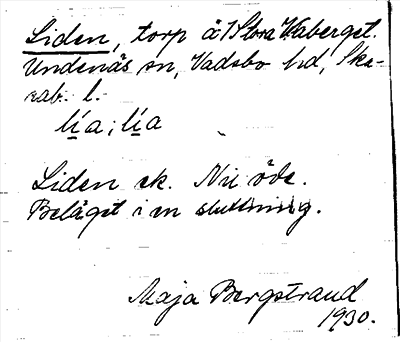 Liden, torp å 1 Stora Kaberget.
Undenäs sn, Vadsbo hd, Ska-
rab. l.
lía; lía
Liden ek. Nu öde.
Beläget i en sluttning.
Maja Bergstrand
1930.